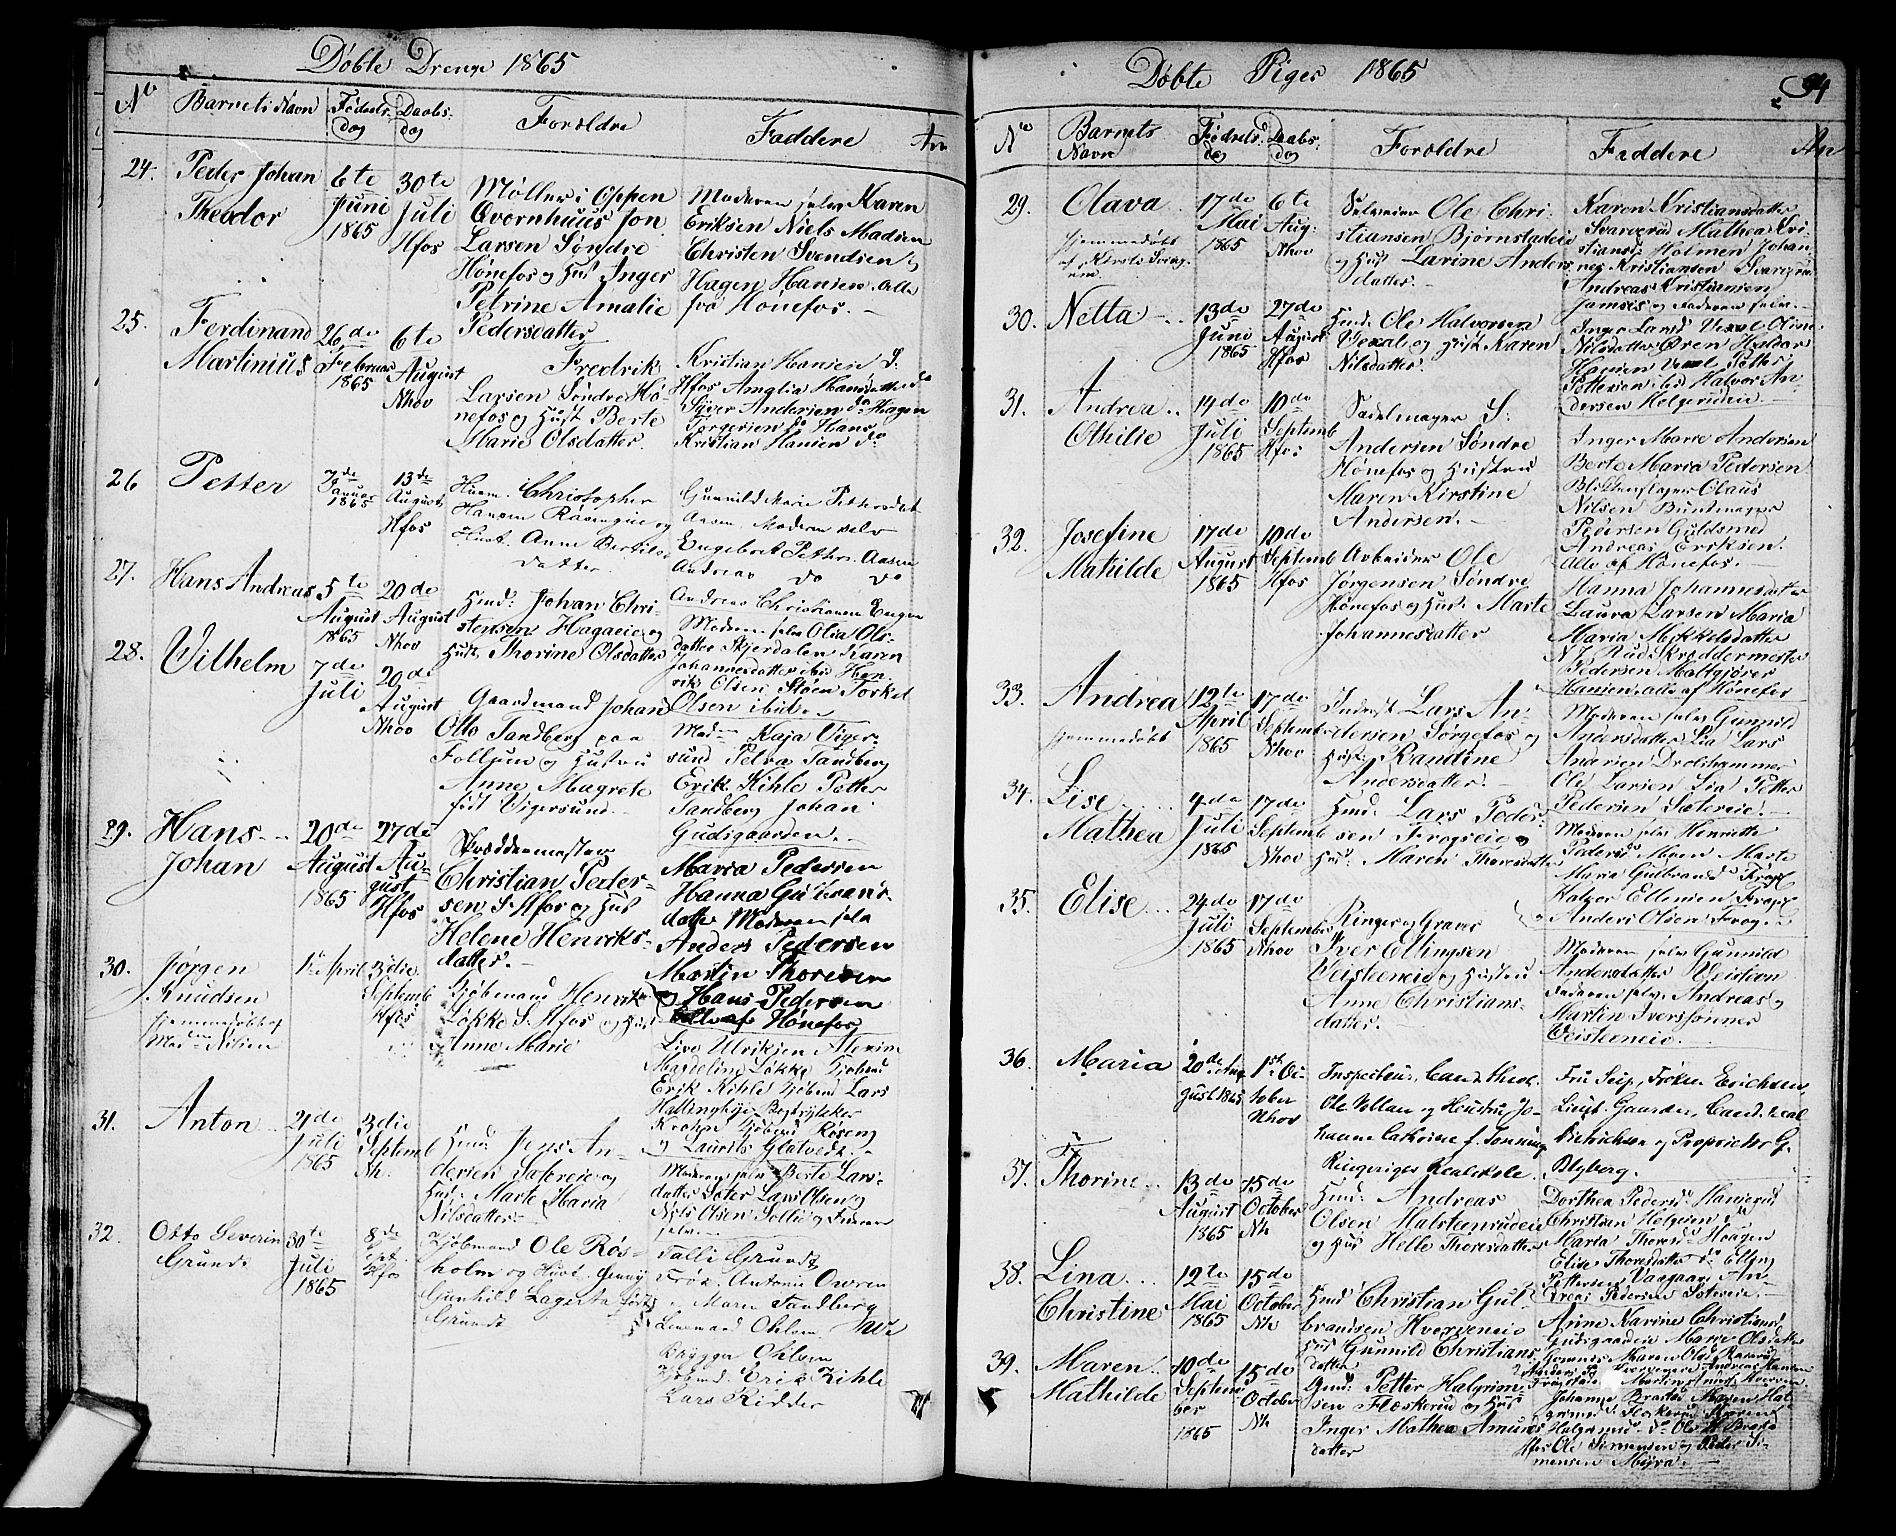 Døbte Drenge 1865
No Barnets Navn Fødsels-dag Daabs-dag Forældre Faddere
24. Peder Johan Theodor
6te Juni 1865
30te Juli Hfos
Møller i Oppen
Qvornhuus Jon
Larsen Søndre
Hønefos og Hust Inger
Petrine Amalie
Pedersdatter
Moderen selv Karen
Eriksen Niels Madsen
Christen Svendsen
Hagen Hansen. Alle
fra Hønefos. —
25. Ferdinand Martinius
26de Februar 1865
6te August Nhov
Fredrik
Larsen Søndre Hø-
nefos og Hust Berte
Marie Olsdatter.
Kristian Hansen S.
Hfos Amalia Hansdatter do
Syver Andersen do Hagen
Torgersen do Hans
Kristian Hansen do
26 Petter
7de Januar 1865
13de August Hfos
Huusm. Christopher
Hansen og
Hust. Anne Bertils-
datter.
Gunnild Marie Pettersdat
Aasen Moderen selv
Engebret Petters. Aasen
Andreas do do
27. Hans Andreas
5te August 1865
20de August Nhov
Huusm: Johan Chri-
stensen Hagaeie og
Hust. Thorine Olsdatter
Andreas Christiansen Engen
Moderen selv Olia Ols-
datter Skjerdalen Karen
Johannesdatter ibid Hen-
rik Olsen Støen Torkel
Olsen ibid.
28. Vilhelm
7de Juli
20de August Nhov
Gaardmand Johan
Otto Tandberg paa
Follum og Hustru
Anne Magrete
født Vigersund.
Mod— Kaja Viger-
sund Petra Tandberg
Erik Kihle Petter
Tandberg Johan
Gudsgaarden. —
29. Hans Johan
20de August 1865
27de August Hfos
Skræddermester
Christian Peder-
sen S. Hfos og Hust
Helene Henriks-
datter. —
Maria Pedersen
Hanna Gulbrands-
datter Moderen selv
Anders Pedersen
Martin Thoresen
og Hans Pedersen
alle af Hønefos
30. Jørgen Knudsen
hjemmedøbt af
Mad— Nilsen
1ste April
3die Septemb Hfos
Kjøbmand Henrik
Løkke S. Hfos og Hust
Anne Marie
Live Ulrikjen
Magdeline Løkke Kjøbmd
Erik Kihle Kjøbmd Lars
Hallingbye Bogtrykker
Krohn Kjøbmd Rosen
og Laurits Glatvedt. —
31. Anton
21de Juli 1865
3die Septemb Nh.
Huusm: Jens An-
dersen Sætreeie og
Hust. Marte Maria
Nilsdatter. —
Moderen selv Berte Lars-
datter Sæter Lars Olsen
Niels Olsen Sollid og Faderen
selv. —
32. Otto Severin Grundt
30te Juli 1865
8de Sept Hfos
Kjøbmand Ole Røs-
holm og Hust. Jenny
Gunhild Lagerta født
Grundt
Talli Grundt
Frøk. Antonie Owren
Maren Tandberg
Ohlsen
Brygger Ohlsen
Kjøbmd: Erik Kihle
Lars Ridder
Døbte Piger 1865
94
No Barnets Navn Fødsels-dag Daabs-dag Forældre Faddere
29. Olava
hjemmedøbt
17de Mai 1865
6te Aug: Nhov
Selveier Ole Chri-
stiansen Bjørnstadeie
og Hust Larine Anders
datter. —
Karen Kristiansdatter
Svarverud Mathea Kri-
stiansd Holmen Johan
nes Kristiansen
Andreas Kristiansen
og Faderen selv. —
30. Netta
13de Juni 1865
27de August Hfos
Huusm: Ole Halvorsen
Vexal og Hust Karen
Nilsdatter.
Inger Larsd Vexal Oline
Nilsdatter Øren Haldor
Hansen Vexal Petter
Pettersen ibid Halvor An-
dersen Helgerudeie. —
31. Andrea Othilie
14de Juli 1865
10de Septemb Hfos
Sadelmager S:
Andersen Søndre
Hønefos og Hustru
Maren Kirstine
Andersen. —
Inger Marie Andersen
Berte Maria Pedersen
Blikkenslager Olaus
Nilsen Buntmager
Pedersen Guldsmed
Andreas Eriksen.
Alle af Hønefos. —
32. Josefine Mathilde
17de August 1865
10de Septemb Hfos
Arbeider Ole
Jørgensen Søndre
Hønefos og Hust. Marte
Johannesdatter
Hanna Johannesdatter
Laura Larsen Maria
Maria Mikkelsdatter
N. J. Rud Skræddermester
Pedersen Maltgjører
Hansen alle af Hønefos
33. Andrea
hjemmedøbt
12te April 1865
17de Septemb Nhov
Inderst Lars An-
dersen Sørgefos og
Hust: Randine
Andersdatter. —
Moderen selv Gunnild
Andersdatter Lia Lars
Andersen Drolshammer
Ole Larsen Lia Petter
Pedersen Sætereie. —
34. Lise Mathea
4de Juli 1865
17de Septemb Nhov
Huusm: Lars Peder-
sen Frogseie og
Hust. Maren Thoresdatter
Moderen selv Henriette
Pedersd Moen Marte
Maria Gulbrandsd Frogs
Halvor Ellensen Frogs
Anders Olsen Frog. —
35. Elise
24de Juli 1865
17de Septembr Nhov
Ringer og Graver
Iver Ellingsen
Veisteneie og Hustru
Anne Christians-
datter. —
Moderen selv Gunnild
Andersdatter
Faderen selv. Andreas og
Martin Iverssønner
Veisteneie. —
36. Maria
20de August 1865
1ste October Nhov
Inspecteur, Cand. theol.
Ole Vollan og Hustru Jo-
hanne Cathrine f. Lonning
Ringeriges Realskole.
Fru Seip, Frøken Erichsen,
Lieut. Gaarder, Cand. real
Dietrichson og Proprietær G.
Blyberg.
37. Thorine
13de August 1865
15de October Nh
Huusm: Andreas
Olsen Halsteenrudeie
og Hust Helle Thoresdatter
Dorthea Pedersd Hanserud
Christian Helgesen do
Maria Thoresd Haagen
Elise Thoresdatter do Elling
Pettersen Vaagaar An-
dreas Pedersen Sætereie. —
38. Lina Christine
12te Mai 1865
15de October Nh
Huusmd Christian Gul-
brandsen Hverveneie
Hust Gunnild Christians
datter
Anne Karine Christiansd
Gudsgaarden Marie Olsdatter
Maren Olsd
39. Maren Mathilde
10de September 1865
15de October Nh
Huusm: Petter Halgrim-
sen Flæskerud og Hust
Inger Mathea Amunds
datter
Johanne Braataa Maren Hal-
grimsd Flæskerud
Halgrimsd do Ole H Braataa
Hfos Ole Simensen og Peder Si-
mensen Myra. —